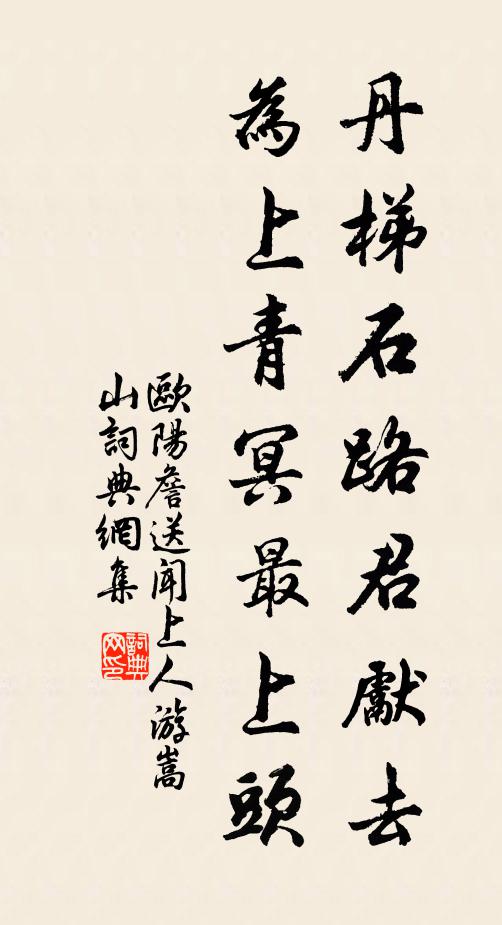 丹梯石路君獻去
為上青冥最上頭
歐陽詹送聞上人游嵩
山詞典網集
詞典
网印